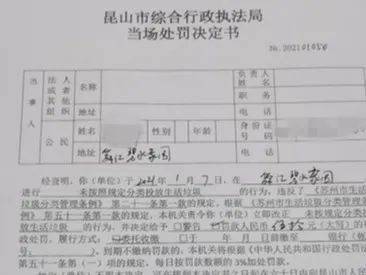 昆山市综合行政执法局
当场处罚决定书
No.202101050
当事人
法人或者其他组织
名称
负责人姓名
职务
地址
电话
公民
姓名
性别
年龄
身份证号码
地址
碧水豪园
电话
经查明,你(单位)于2021年1月7日,在
碧水豪园
进行 未按照规定分类投放生活垃圾 的行为,违反了《苏州市生活
垃圾分类管理条例》第二十一条第一款的规定,依据《苏州市生活垃圾分类管理条
例》第五十一条第一款的规定,本机关责令你(单位)立即改正 未按规定分类投
放生活垃圾 的行为,并给予□警告 罚款人民币伍拾元(大写)的行
政处罚,履行方式: 委托代收缴,于 年 月 日前缴至 银行(帐
号 ),到期不缴纳罚款的,本机关将根据《中华人民共和国行政处罚法》
第五十一条第一项的规定,每日按罚款数额的3%加处罚款。